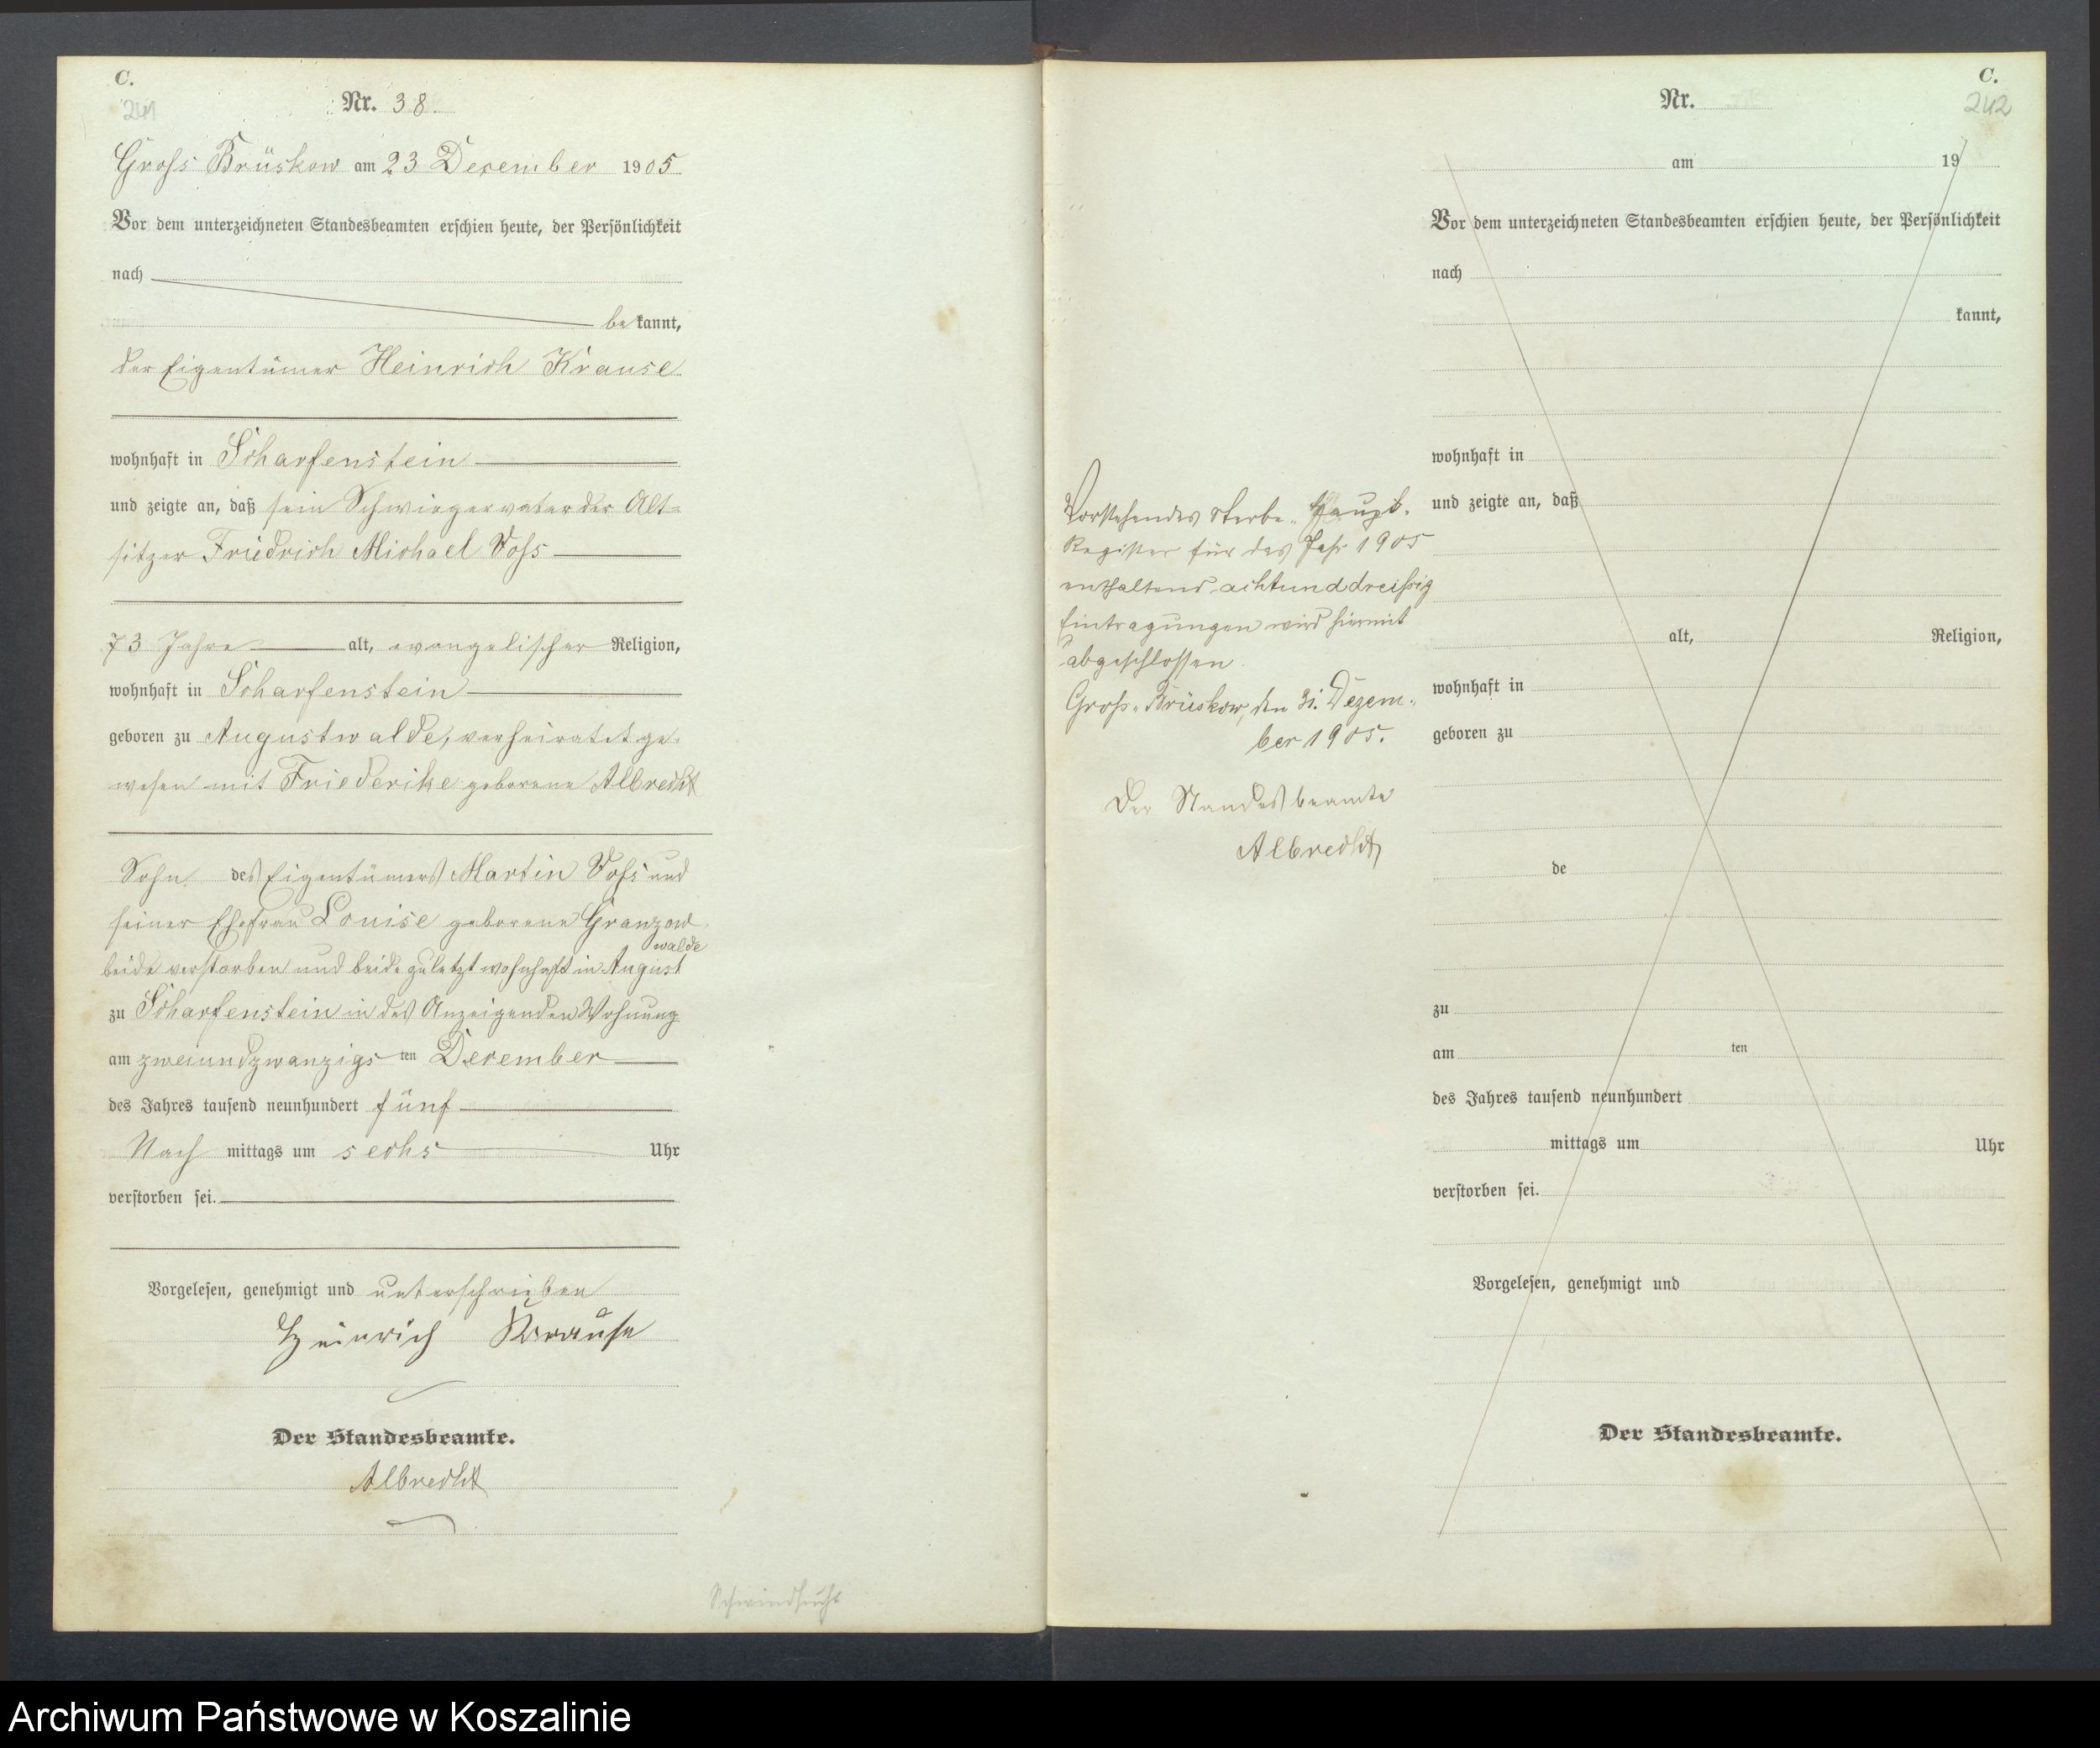 C.
241
Nr. 38.
Gross Brüskow am 23 December 1905
Vor dem unterzeichneten Standesbeamten erschien heute, der Persönlichkeit
nach
bekannt,
der Eigentümer Heinrich Krause
wohnhaft in Scharfenstein
und zeigte an, daß sein Schwiegervater der Alt=
sitzer Friedrich Michael Voss
73 Jahre alt, evangelischer Religion,
wohnhaft in Scharfenstein
geboren zu Augustwalde, verheiratet ge-
wesen mit Friederike geborene Albrecht
Sohn des Eigentümers Martin Voss und
seiner Ehefrau Louise geborene Granzow
walde
beide verstorben und beide zuletzt wohnhaft in August
zu Scharfenstein in des Anzeigenden Wohnung
am zweiundzwanzigsten December
des Jahres tausend neunhundert fünf
Nach mittags um sechs Uhr
verstorben sei.
Vorgelesen, genehmigt und unterschrieben
Heinrich Krause
Der Standesbeamte.
Albrecht
Schwindsucht
Vorstehendes Sterbe-Haupt-
Register für das Jahr 1905
enthaltend achtunddreißig
Eintragungen wird hiermit
abgeschlossen.
Gross-Brüskow, den 31. Dezem-
ber 1905.
Der Standesbeamte
Albrecht
C.
242
Nr.
am 19
Vor dem unterzeichneten Standesbeamten erschien heute, der Persönlichkeit
nach
kannt,
wohnhaft in
und zeigte an, daß
alt, Religion,
wohnhaft in
geboren zu
de
zu
am ten
des Jahres tausend neunhundert
mittags um Uhr
verstorben sei.
Vorgelesen, genehmigt und
Der Standesbeamte.
Archiwum Państwowe w Koszalinie